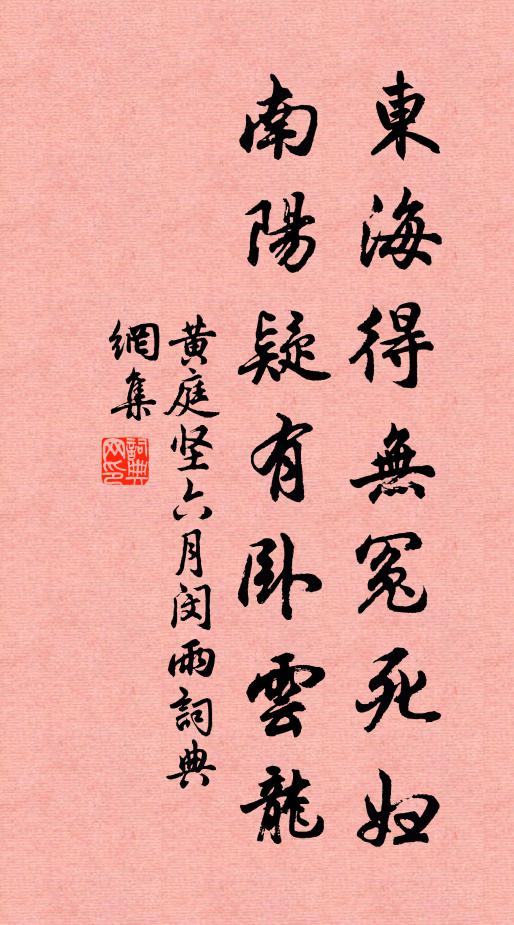 東海得無冤死婦
南陽疑有卧雲龍
黃庭坚六月闵雨詞典
網集
詞典
网印